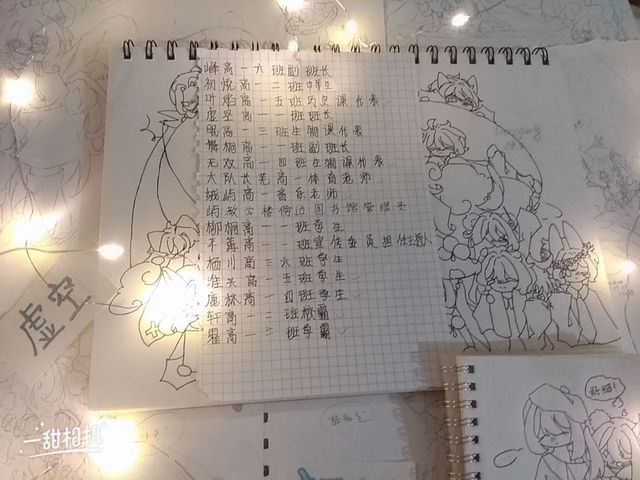 峰高一六班副班长
初悦高一二班学生
叶焰高一五班历史课代表
虚空高一一班班长
眠高一三班生物课代表
舞桐高一一班副班长
无双高一四班生物课代表
大队长羌高一体育老师
绒屿高一音乐老师
屿教学楼傍边图书馆管理员
柳桐高一一班学生
高一一班宣传委员担任
杨川高三六班学生
高一五班学生
鹿林高一四班学生
轩高一二班校霸
墨高一三班学霸
虚空
一甜相机